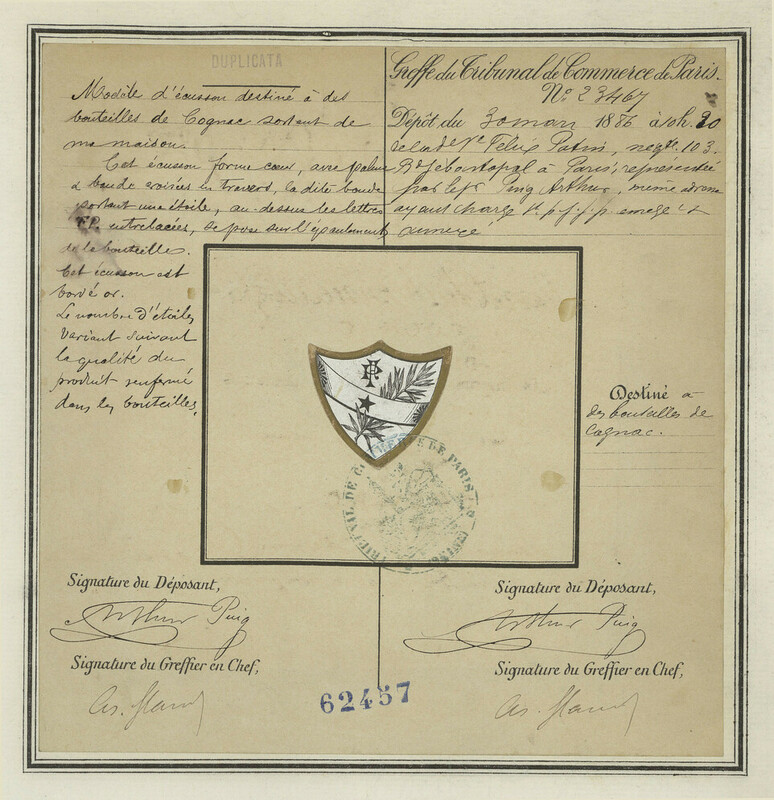 DUPLICATA
Modèle d'écusson destiné à des
bouteilles de Cognac sortant de
ma maison.
Cet écusson forme cœur, avec palmes
& bande croisées en travers, la dite bande
portant une étoile, au-dessus les lettres
FP entrelacées, se pose sur l'épaulement
de la bouteille.
Cet écusson est
bordé or.
Le nombre d'étoiles
variant suivant
la qualité du
produit renfermé
dans les bouteilles.
Greffe du Tribunal de Commerce de Paris.
No. 23467
Dépôt du 30 mars 1886 à 10h. 20
Félix Potin, negte. 103
Bd Sébastopol à Paris, représentée
par le sr Puig Arthur, même adresse
ayant charge
FP
TRIBUNAL DE COMMERCE DE PARIS
Destiné à
des bouteilles de
Cognac.
Signature du Déposant,
Arthur Puig
Signature du Greffier en Chef,
Signature du Déposant,
Arthur Puig
Signature du Greffier en Chef,
62457